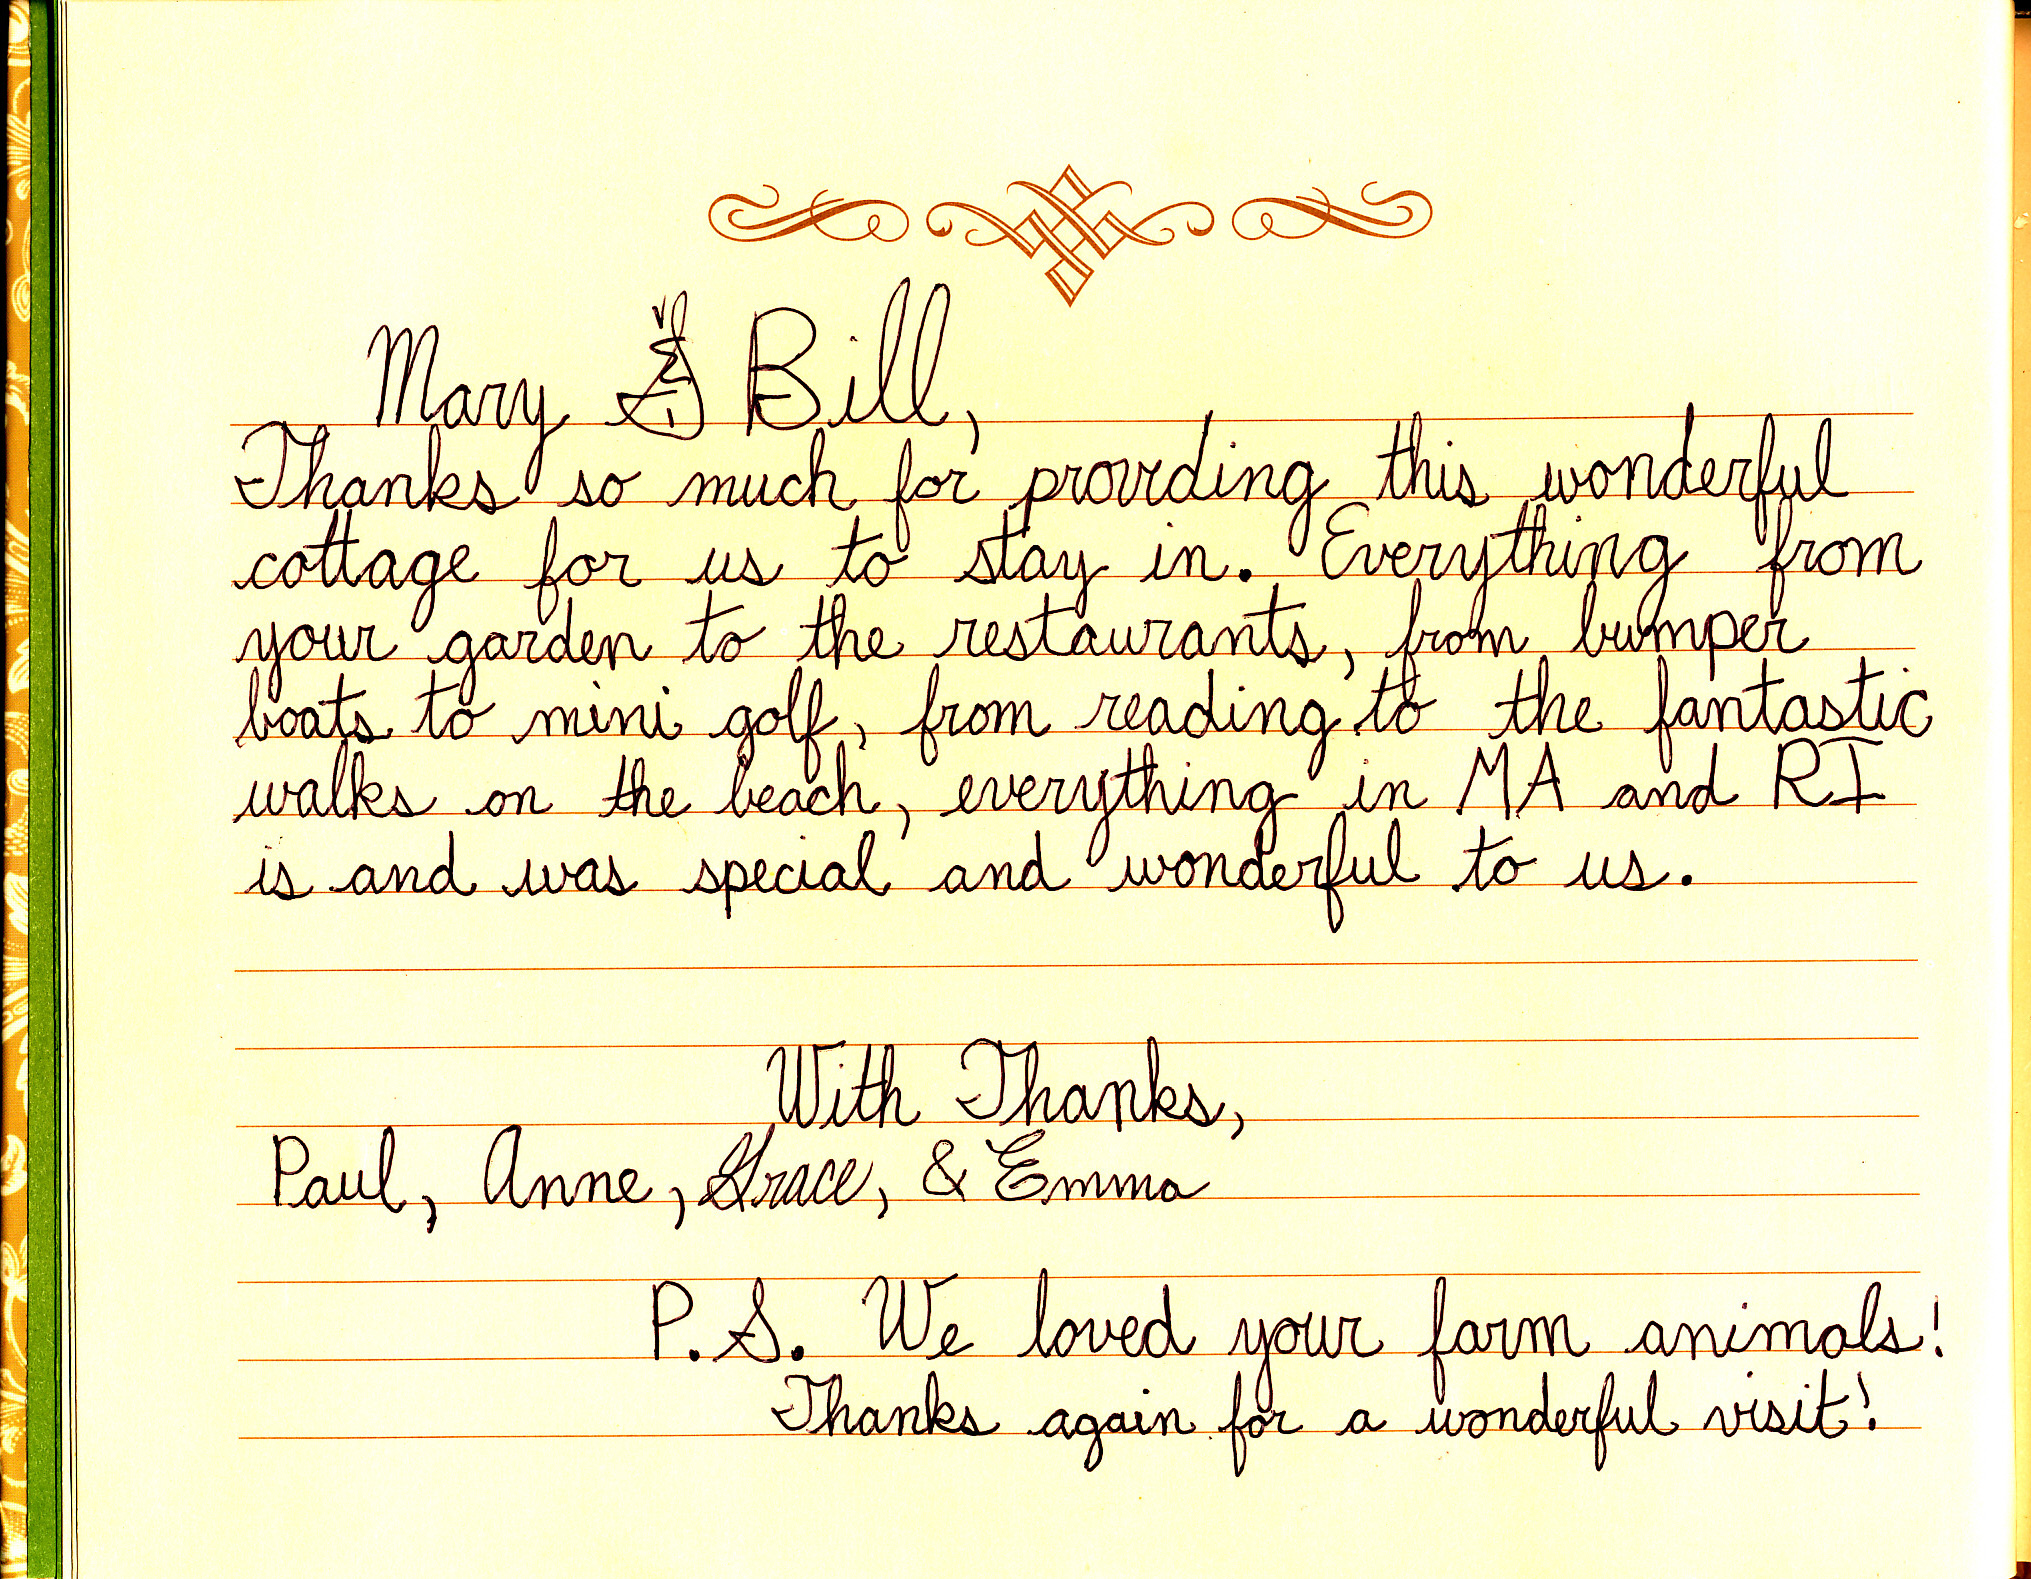 Mary & Bill,
Thanks so much for providing this wonderful
cottage for us to stay in. Everything from
your garden to the restaurants, from bumper
boats to mini golf, from reading to the fantastic
walks on the beach, everything in MA and RI
is and was special and wonderful to us.
With Thanks,
Paul, Anne, Grace, & Emma
P.S. We loved your farm animals!
Thanks again for a wonderful visit!